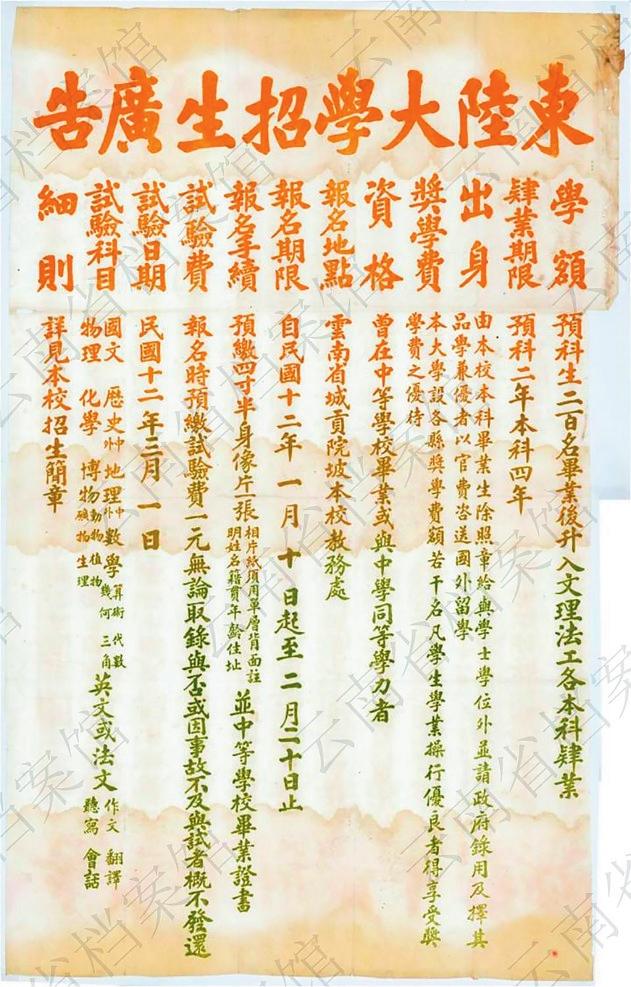 東陸大學招生廣告
學額 預科生二百名畢業後升入文理法工各本科肄業
肄業期限 預科二年本科四年
出身 由本校本科畢業生除照章給與學士學位外並請政府錄用及擇其
品學兼優者以官費咨送國外留學
獎學費 本大學設各縣獎學費額若干名凡學生學業操行優良者得享受獎
學費之優待
資格 曾在中等學校畢業或與中學同等學力者
報名地點 雲南省城貢院坡本校教務處
報名期限 自民國十二年一月十日起至二月二十日止
報名手續 預繳四寸半身像片一張 相片紙須用單層背面註
明姓名籍貫年齡住址 並中等學校畢業證書
試驗費 報名時預繳試驗費一元無論取錄與否或因事故不及與試者概不發還
試驗日期 民國十二年三月一日
試驗科目 國文 歷史中外 地理中外 數學 算術 代數
幾何 三角 英文或法文 作文 翻譯
聽寫 會話
物理 化學 博物 動物 植物
礦物 生理
細則 詳見本校招生簡章
云南省档案馆